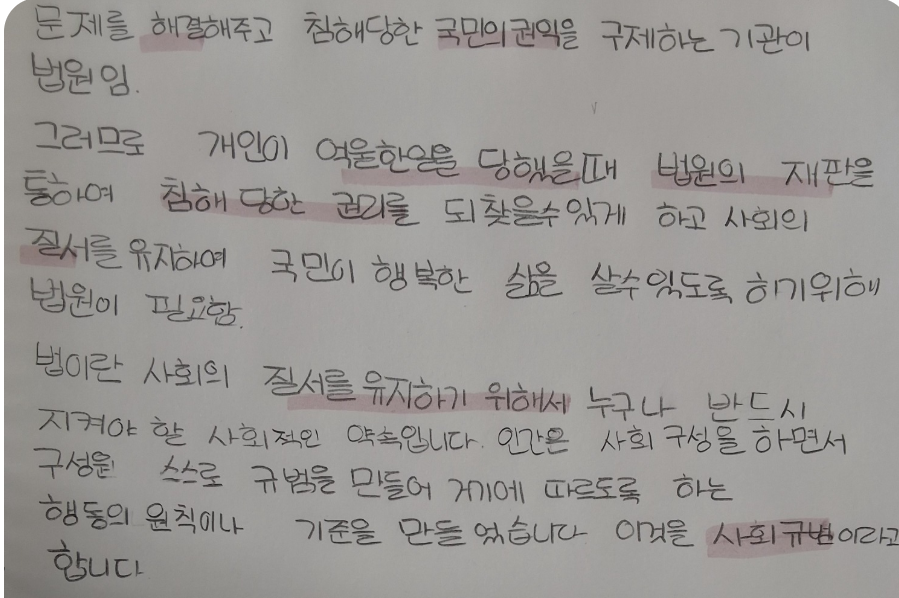 문제를 해결해주고 침해당한 국민의권익을 구제하는기관이
법원임.
그러므로 개인이 억울한일을 당했을때 법원의 재판을
통하여 침해 당한 권리를 되찾을수있게 하고 사회의
질서를 유지하여 국민이 행복한 삶을 살수있도록 하기위해
법원이 필요함.
법이란 사회의 질서를 유지하기 위해서 누구나 반드시
지켜야 할 사회적인 약속입니다. 인간은 사회 구성을 하면서
구성원 스스로 규범을 만들어 거기에 따르도록 하는
행동의 원칙이나 기준을 만들었습니다 이것을 사회규범이라고
합니다